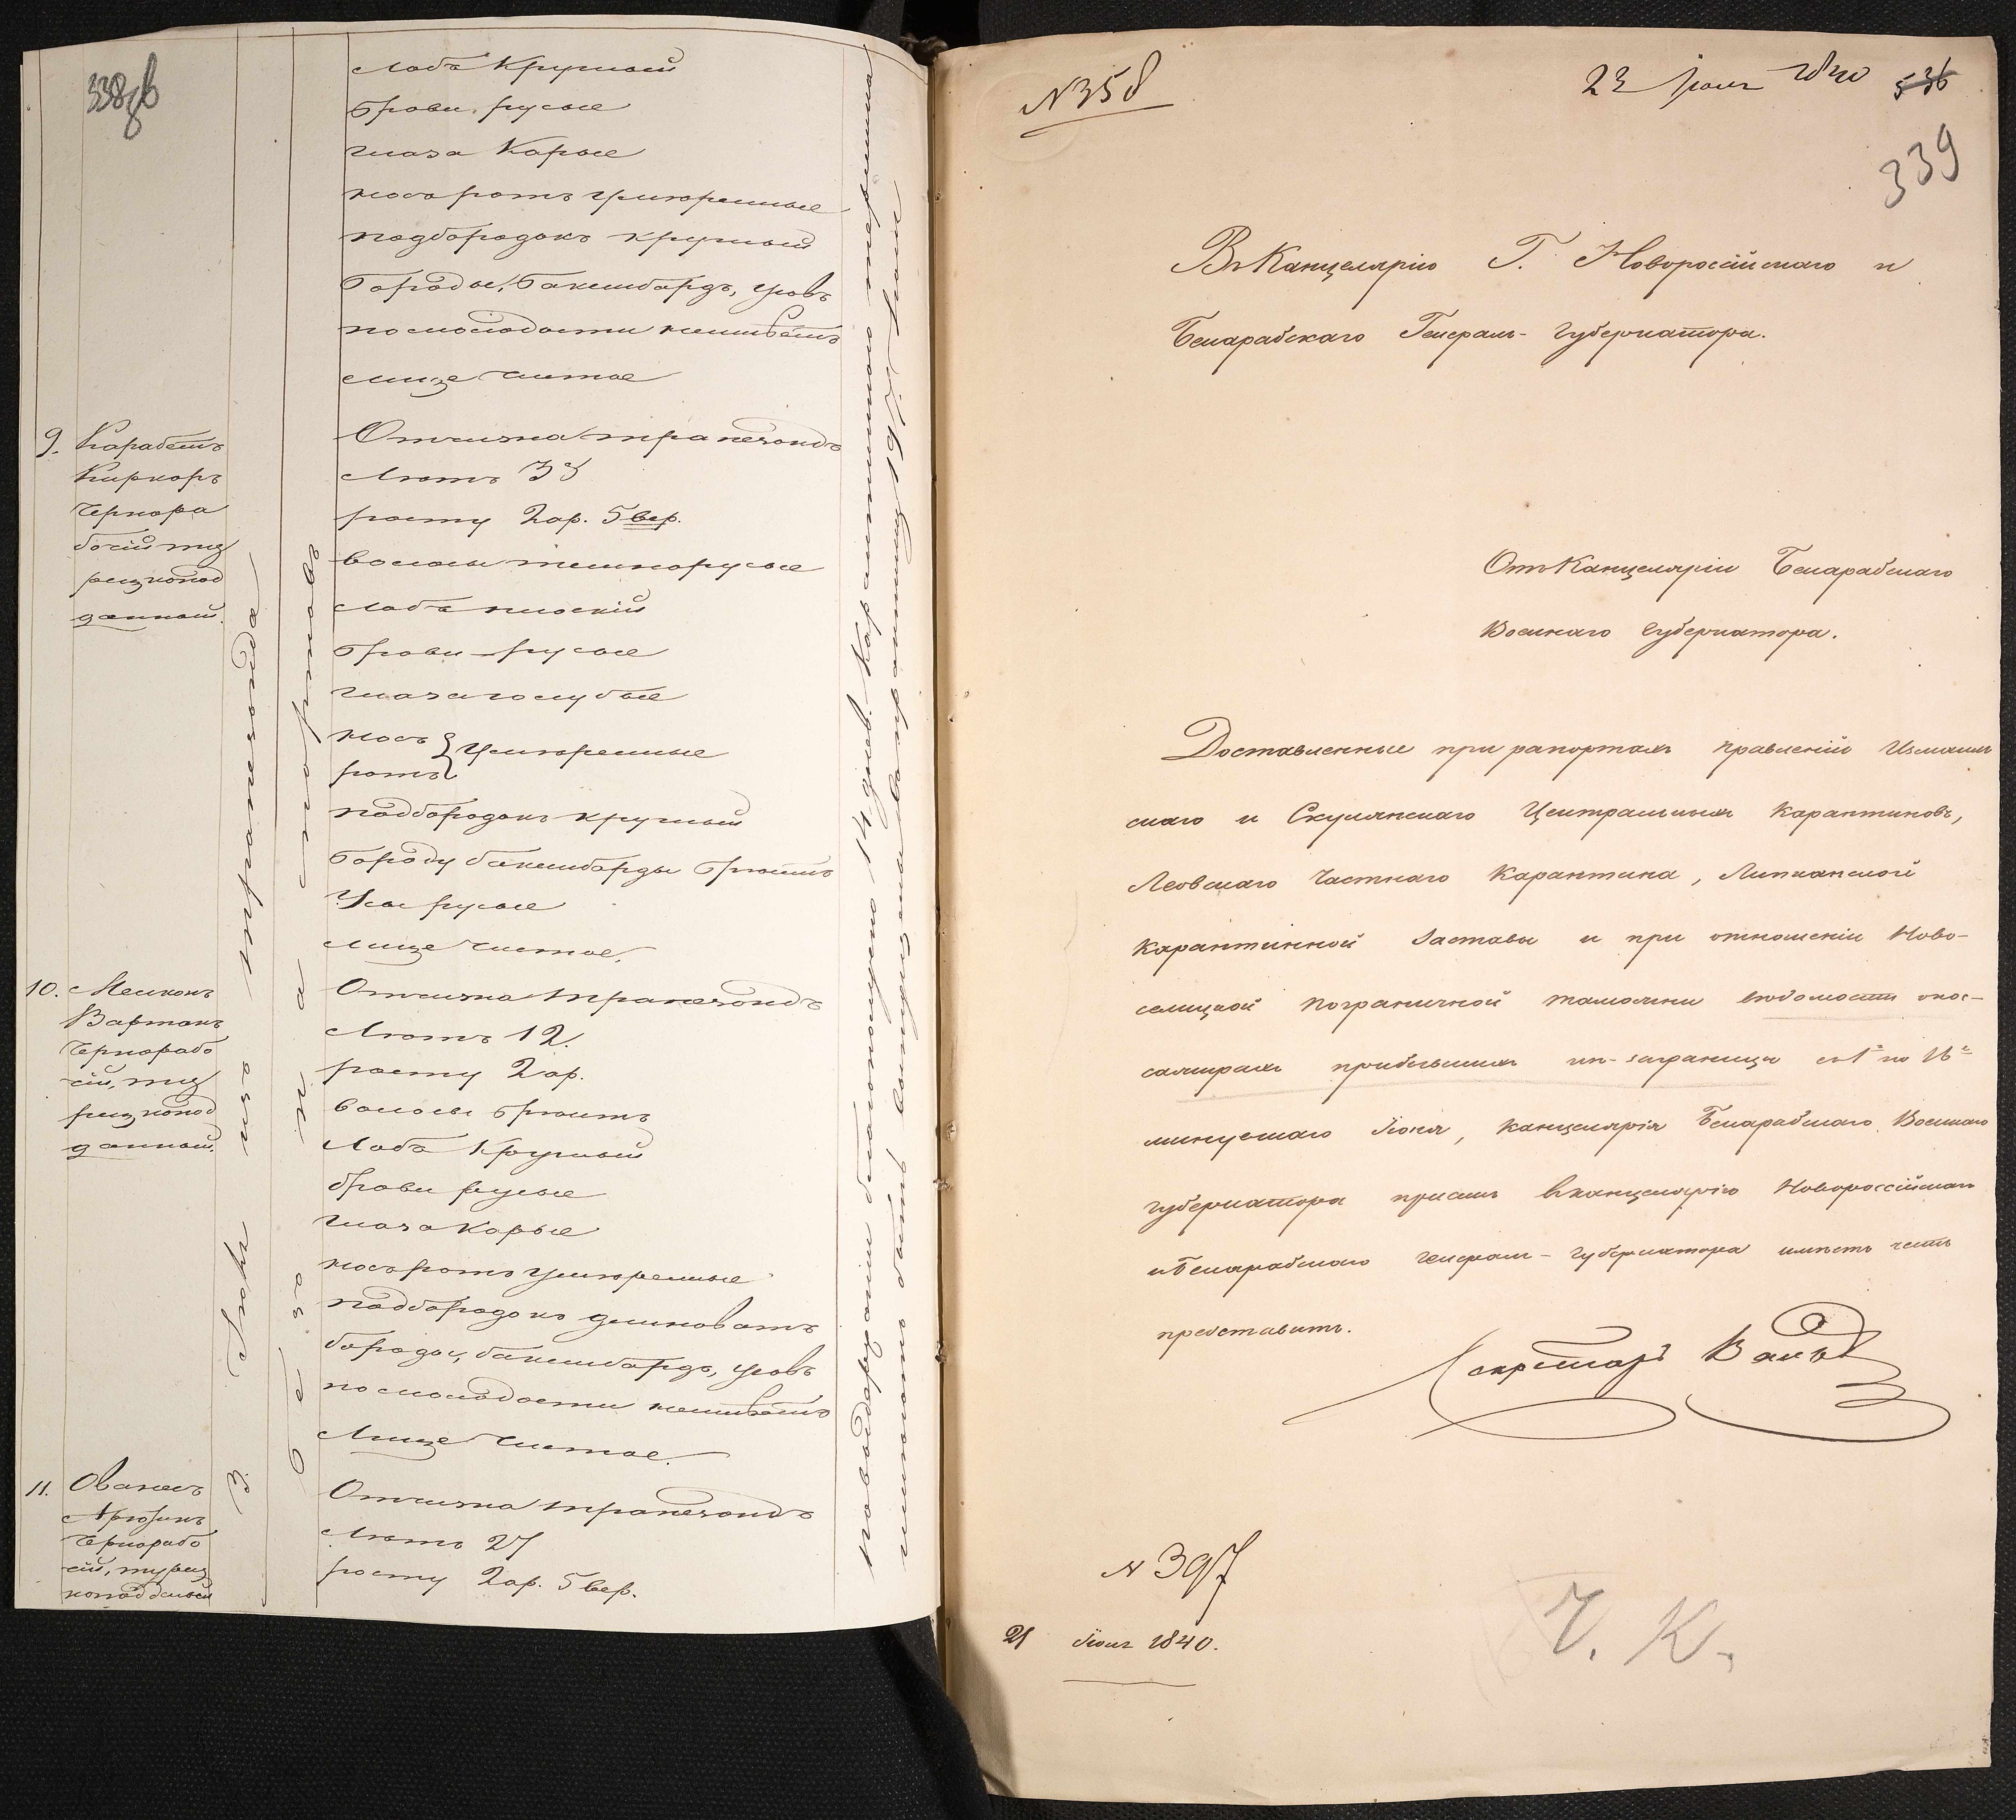 338 об
лобъ Круглый
брови русые
глаза Карые
носъ ротъ умѣренные
подбородокъ круглый
бороды, бакенбардъ, усовъ
по молодости неимѣетъ
лице чистое
9. Карабетъ
Киркоръ
Чернора
бочій ту
рецкопод
данный.
Отчизна трапезондъ
Лѣтъ 33
росту 2 ар. 5 вер.
волосы темнорусые
лобъ плоскій
брови русые
глаза голубые
носъ } умѣренные
ротъ
подбородокъ круглый
бороду бакенбарды брѣетъ
Усы русые
лице чистое.
10. Мелконъ
Вартанъ
Чернорабо
чій, ту
рецкопод
данный.
Отчизна трапезондъ
Лѣтъ 12.
росту 2 ар.
волосы брѣетъ
Лобъ Круглый
брови русые
глаза Карые
носъ ротъ умѣренные
подбородокъ длиноватъ
бороды, бакенбардъ, усовъ
по молодости неимѣетъ
Лице чистое.
11. Ованесъ
Чернорабо
чій, турец
коподданый
Отчизна трапезондъ
Лѣтъ 27
росту 2 ар. 5 вер.
изъ трапезонда
№ 358
23 Іюля 1840
536
339
Въ Канцелярію Г. Новоросійскаго и
Бессарабскаго Генералъ-Губернатора.
Отъ Канцеляріи Бессарабскаго
Военнаго Губернатора.
Доставленные при рапортахъ правленій Измаиль
скаго и Скулянскаго Центральныхъ Карантиновъ,
Леовскаго Частнаго Карантина, Липканской
Карантинной Заставы и при отношеніи Ново-
селицкой Пограничной таможни вѣдомости опас-
сажирахъ прибывшихъ из-заграницы съ 1го по 16е
минувшаго Іюня, Канцелярія Бессарабскаго Военнаго
Губернатора присемъ въ канцелярію Новороссійскаго
и Бессарабскаго Генералъ-Губернатора имѣетъ честь
представить.
Секретарь
№ 397
21 Іюля 1840.
Ч. К.